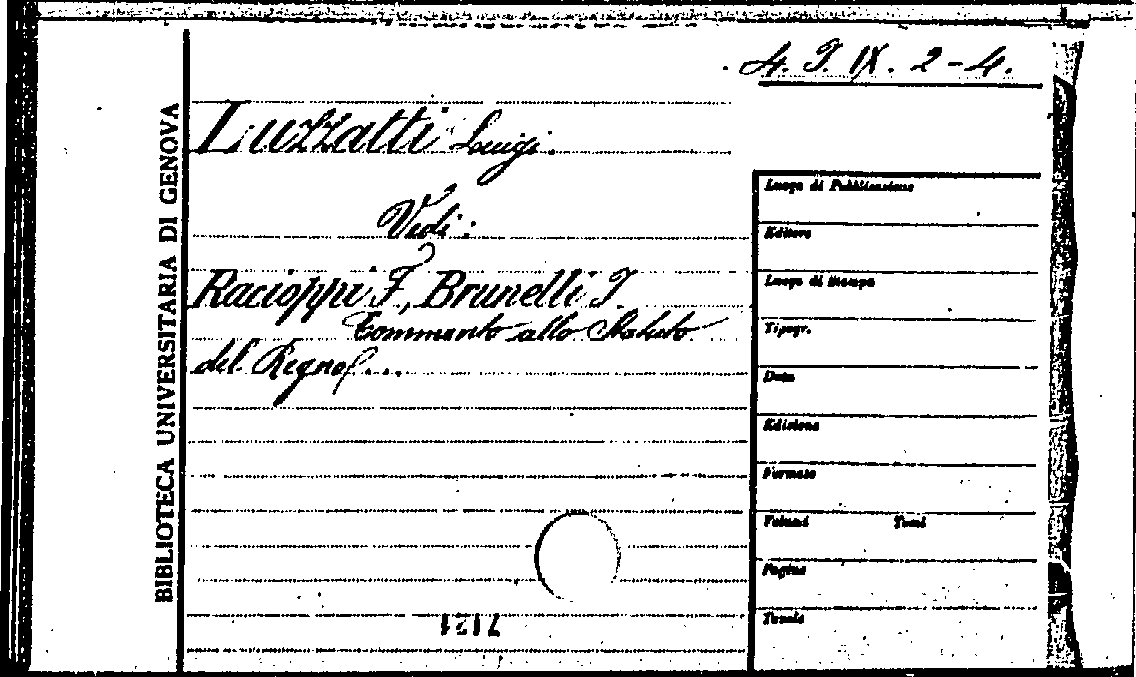 4. T. IX. 2-4.
BIBLIOTECA UNIVERSITARIA DI GENOVA
Luzzatti Luigi.
Vedi:
Racioppi F., Brunelli I.
Commento allo Statuto
del Regno...
Luogo di Pubblicazione
Editore
Luogo di Stampa
Tipogr.
Data
Edizione
Formato
Volumi Tomi
Pagine
Tavole
7121